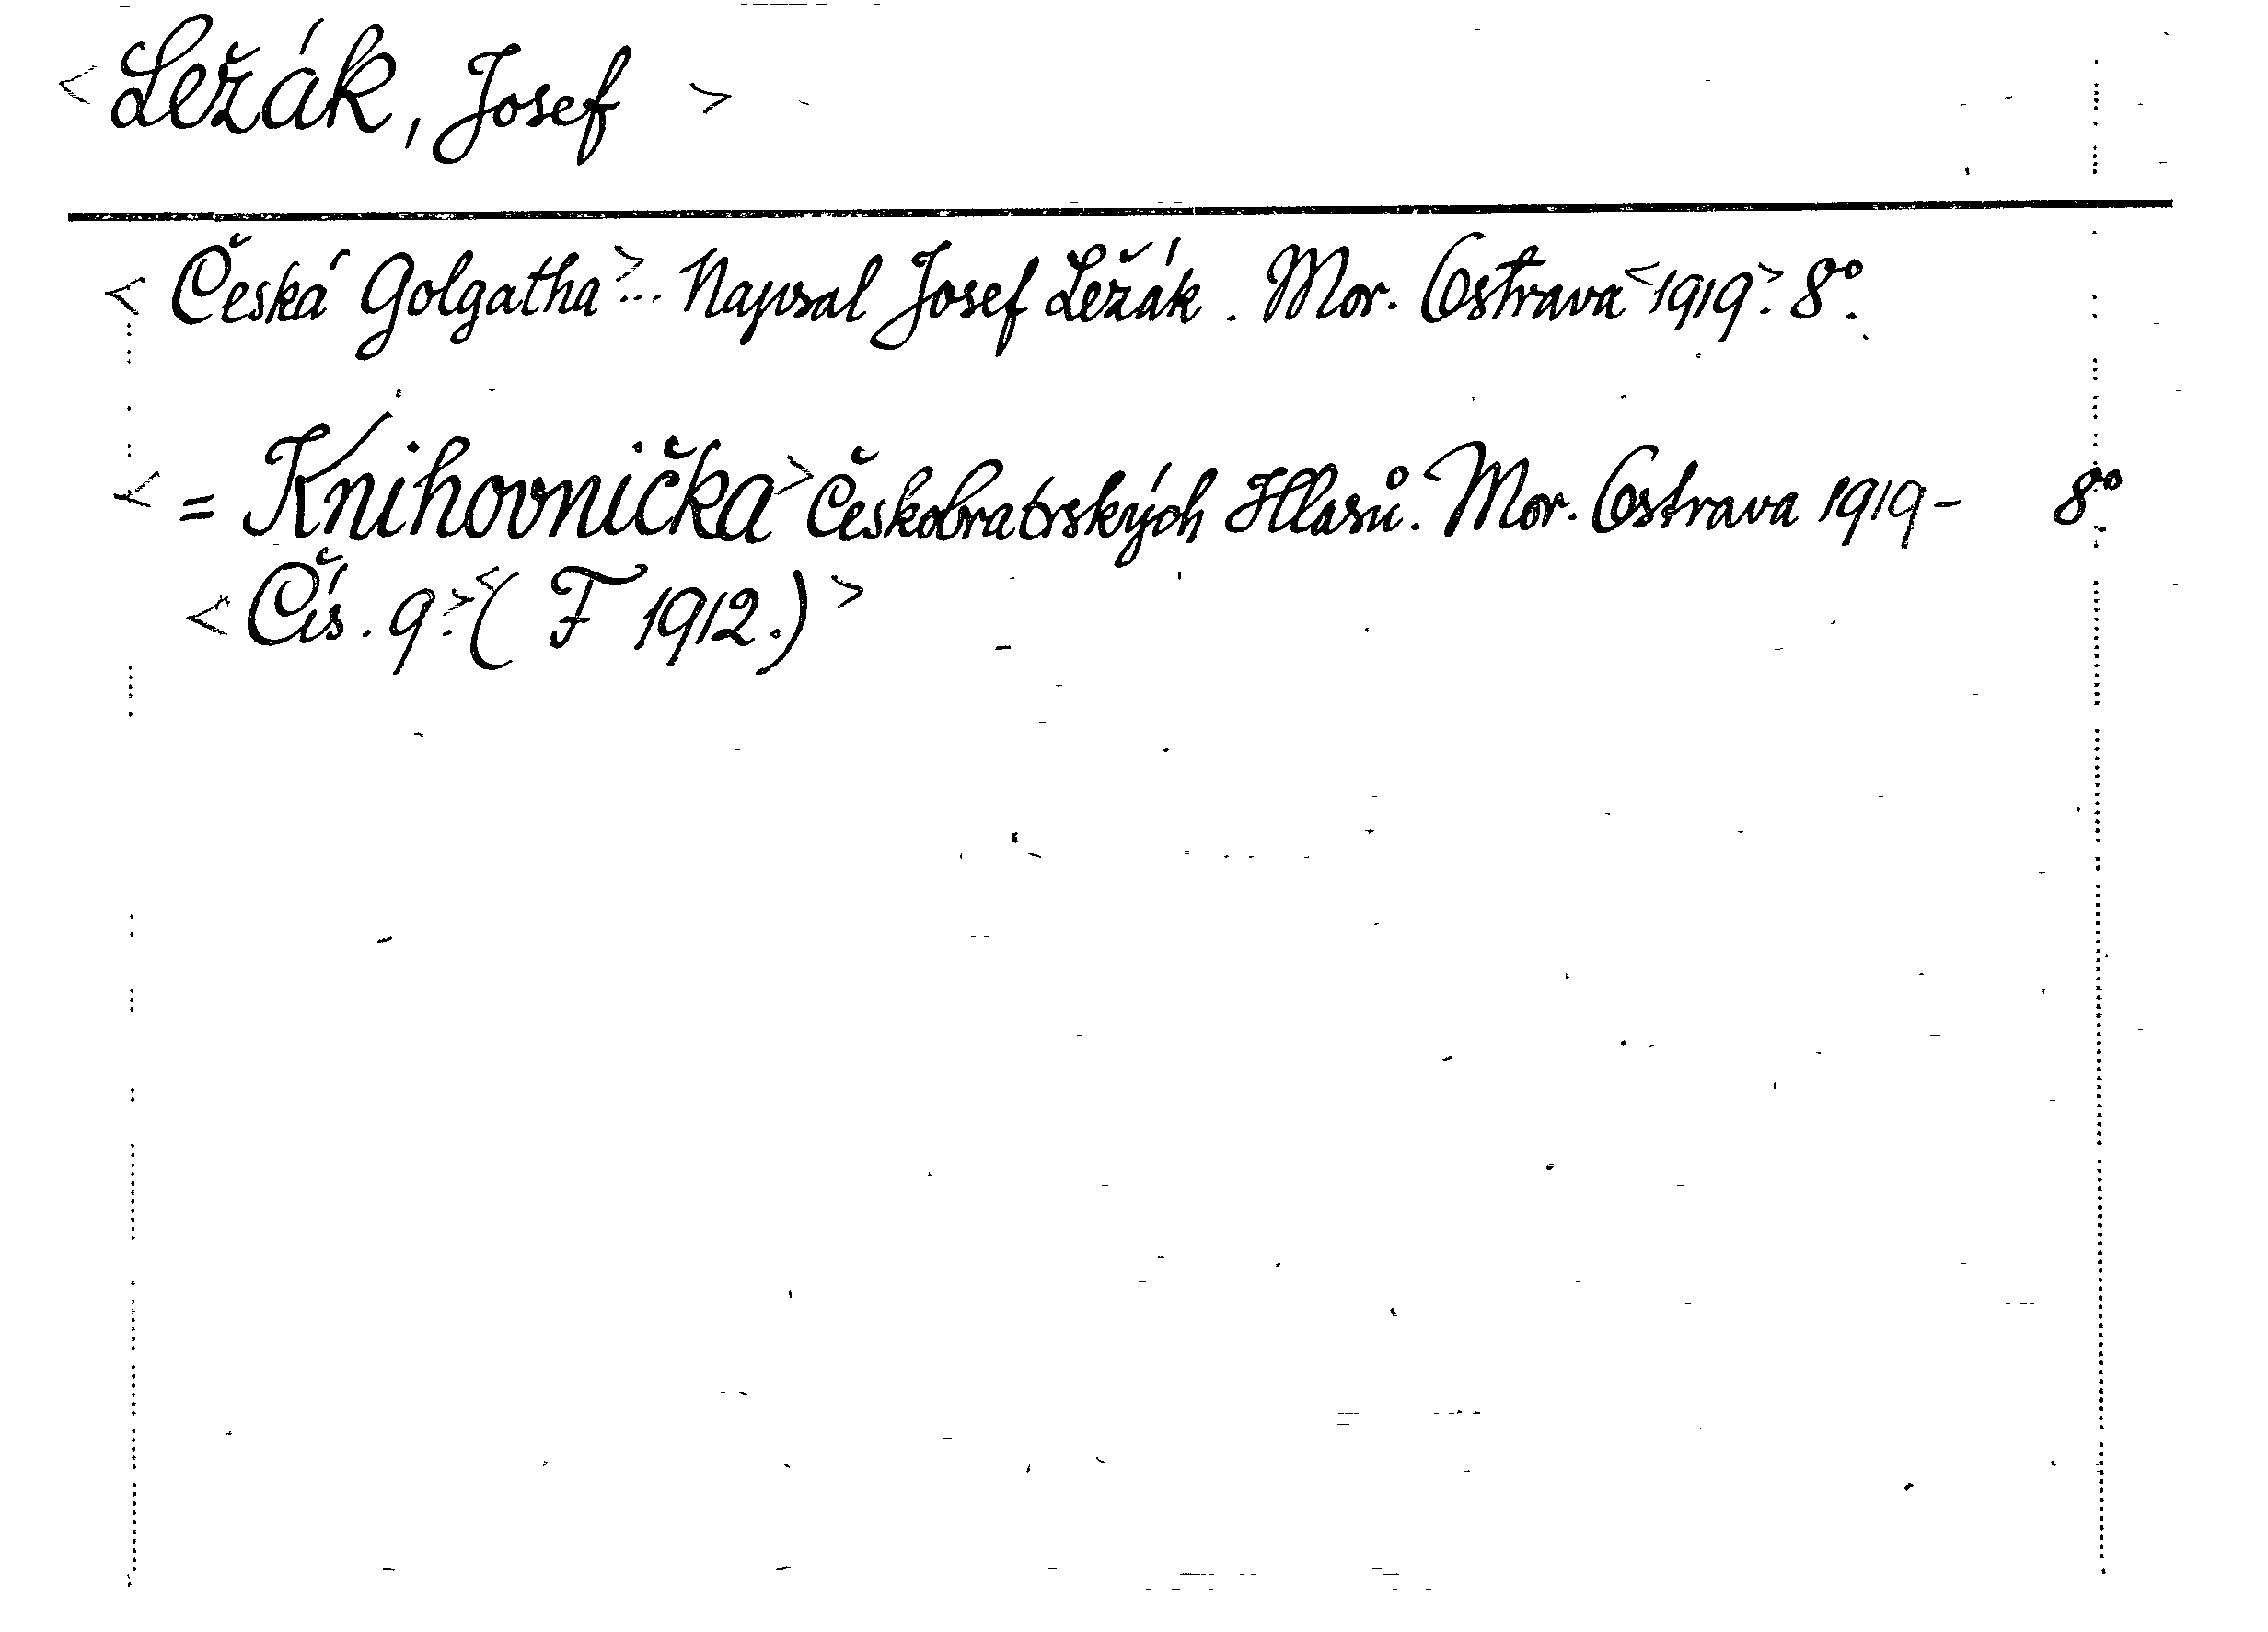 < Ležák, Josef >
< Česká Golgatha > ... Napsal Josef Ležák. Mor. Ostrava < 1919 >. 8°.
< = Knihovnička > Českobratrských Hlasů. Mor. Ostrava 1919 - 8°.
< Čís. 9. > < ( F 1912.) >